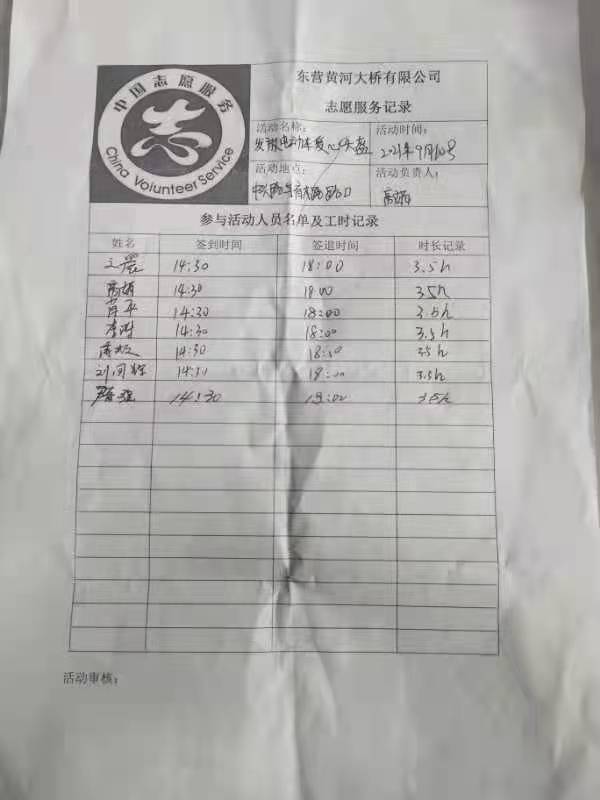 中国志愿服务
志
China Volunteer Service
东营黄河大桥有限公司
志愿服务记录
活动名称：
活动时间：
发放电动车爱心头盔
2021年9月10号
活动地点：
活动负责人：
路口
参与活动人员名单及工时记录
姓名 签到时间 签退时间 时长记录
14:30 18:00 3.5h
14:30 18:00 3.5h
肖平 14:30 18:00 3.5h
14:30 18:00 3.5h
14:30 18:00 3.5h
14:30 18:00 3.5h
14:30 18:00 3.5h
活动审核：